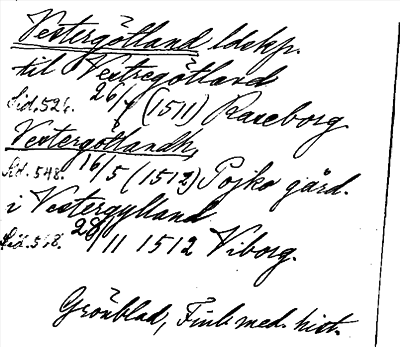 Vestergötland ldskp.
til Vestregötland
Sid. 526. 26/7 (1511) Raseborg
Vestergötlandh,
Sid. 548. 16/5 (1512) Pojko gård.
i Vestergylland
Sid. 568. 28/11 1512 Viborg.
Grönblad, Finl. med. hist.